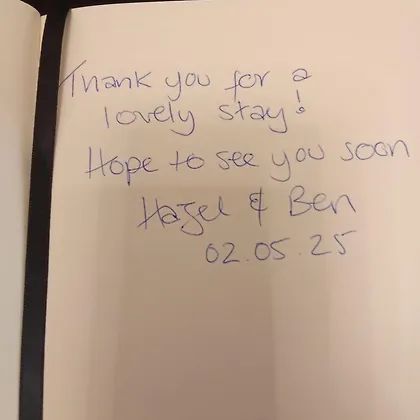 Thank you for a
lovely stay!
Hope to see you soon
Hazel & Ben
02.05.25